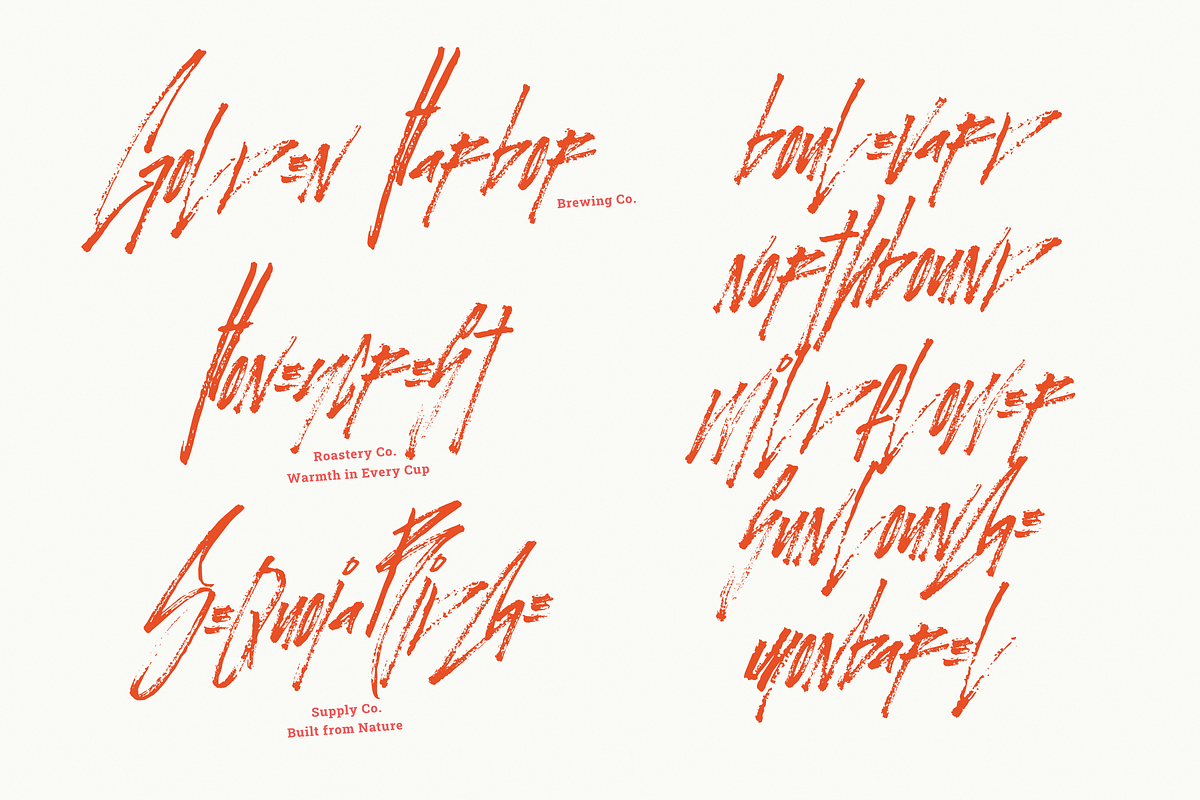 Golden Harbor
Brewing Co.
Honeycrest
Roastery Co.
Warmth in Every Cup
Sequoia Ridge
Supply Co.
Built from Nature
boulevard
northbound
wildflower
sunlounge